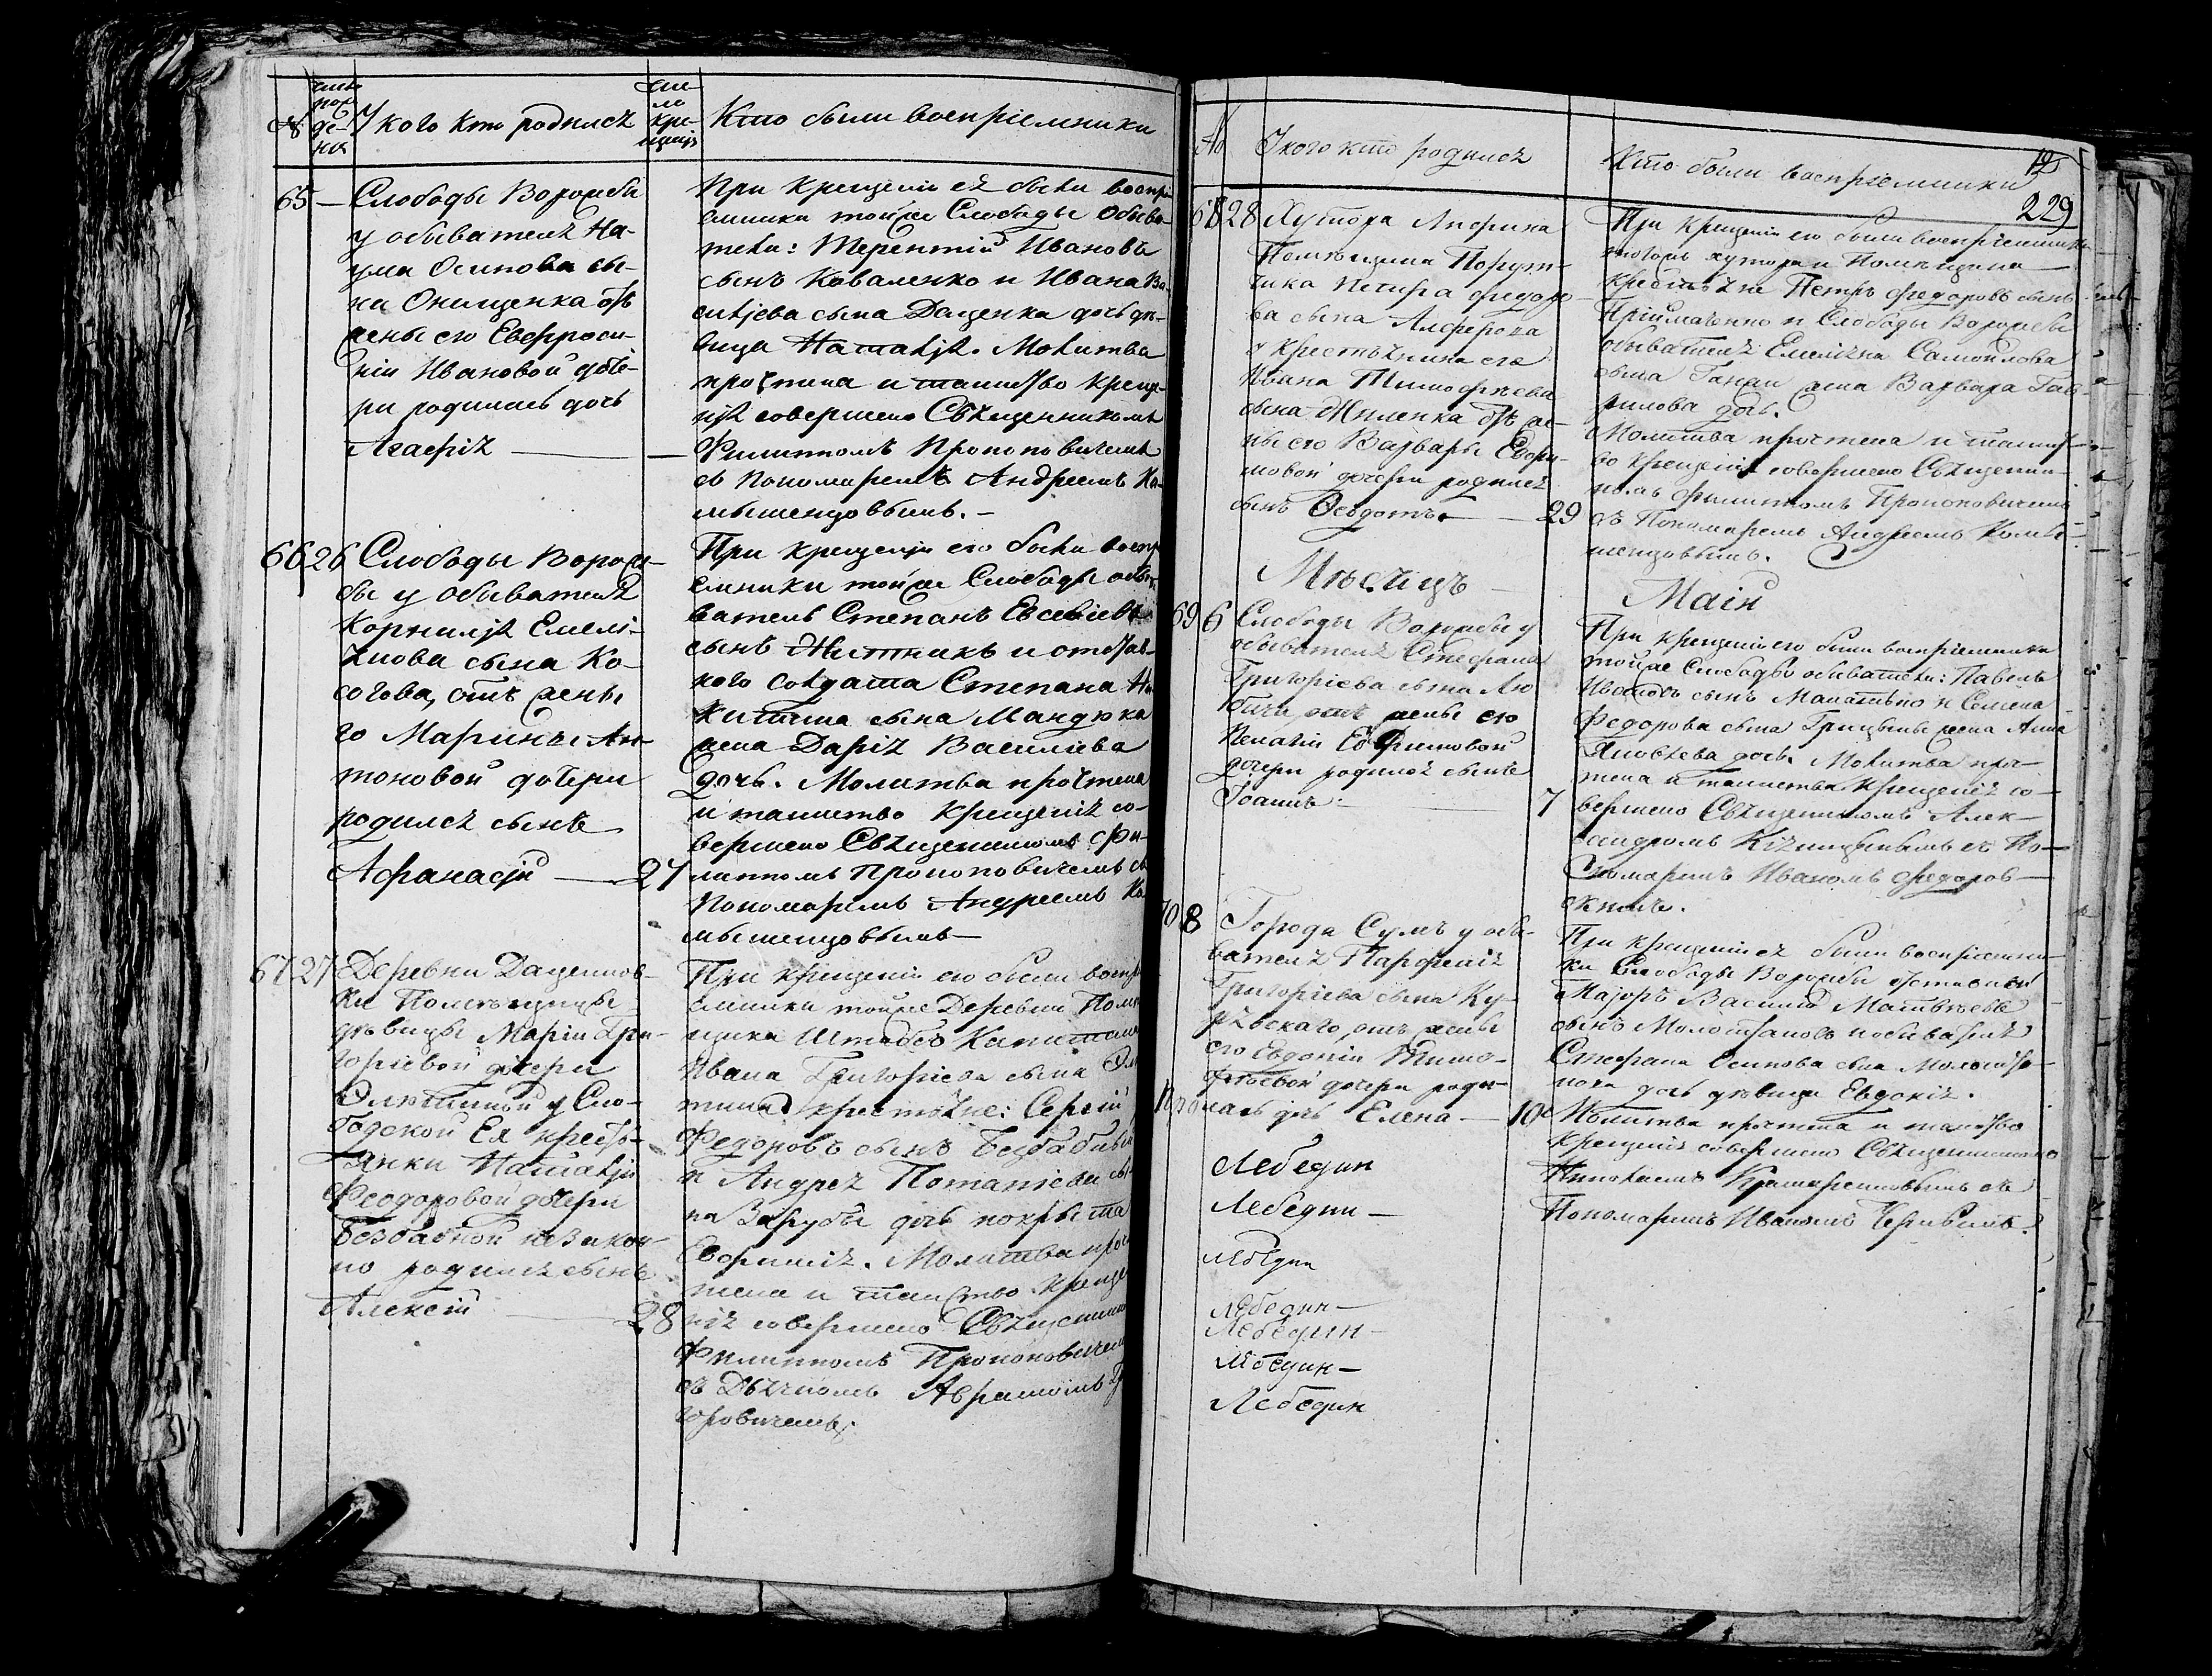 №
число рожде-
нія
У кого кто родился
чи-
сло
кре-
щенія
Кто были воспріемники
65 — Слободы Ворожбы
у обывателя На-
ума Осипова сы-
на Онищенка отъ
жены его Евфроси-
ніи Ивановой доче-
ри родилась дочь
Агафія —
При крещеніи ея были воспрі-
емники тойже Слободы обыва-
тели: Терентій Ивановъ
сынъ Коваленко и Ивана Ва-
силіева сына Даценка дочь дѣ-
вица Наталія. Молитва
прочтена и таинство креще-
нія совершено Священникомъ
Филиппомъ Прокоповичемъ
съ Пономаремъ Андреемъ Ка-
мышенцовымъ. —
66 26 Слободы Ворож-
бы у обывателя
Корнилія Емелі-
янова сына Ко-
согова, отъ жены е-
го Марины Ан-
тоновой дочери
родился сынъ
Афанасій — 27
При крещеніи его были воспрі-
емники тойже Слободы обы-
ватель Степанъ Евсевіевъ
сынъ Житникъ и отстав-
ного Солдата Степана Ни-
китина сына Мандрика
жена Дарія Василіева
дочь. Молитва прочтена
и таинство крещенія со-
вершено Священникомъ Фи-
липпомъ Прокоповичемъ съ
Пономаремъ Андреемъ Ка-
мышенцовымъ —
67 27 Деревни Даценков-
ки Помѣщицы
дѣвицы Маріи Гри-
горіевой дочери
у Сло-
бодской Ея крестъ-
янки Наталіи
Феодоровой дочери
Безбабной незакон-
но родился сынъ
Алексій — 28
При крещеніи его были воспрі-
емники тойже Деревни Помѣ-
щика Штабсъ Капитана
Ивана Григоріева сына
крестьяне: Сергій
Федоровъ сынъ Безбабный
и Андрея Потапіева сы-
на Зарубы дочь покрыта
Евфимія. Молитва проч-
тена и таинство креще-
нія совершено Священником
Филиппомъ Прокоповичем
съ Дьячкомъ Аврамомъ Гри-
горовичемъ.
№
У кого кто родился
Кто были воспріемники
12
229
68 28 Хутора Алферика
Помѣщика Порут-
чика Петра Федоро-
ва сына Алферова
у крестьянина его
Ивана Тимофѣева
сына Жиленка отъ же-
ны его Варвары Ефи-
мовой дочери родился
сынъ Ѳеодотъ. — 29
При крещеніи его были воспріемники
тогожъ хутора и Помѣщика
крестьяне Петръ Федоровъ сынъ
Пріймаченко и Слободы Ворожбы
обывателя Емеліяна Самойлова
сына Ганжи жена Варвара Гав-
рилова дочь.
Молитва прочтена и таинст-
во крещенія совершено Священни-
комъ Филиппомъ Прокоповичемъ
съ Пономаремъ Андреемъ Камы-
шенцовымъ.
Мѣсяцъ
Маій
69 6 Слободы Ворожбы у
обывателя Стефана
Григоріева сына Лю-
бичи, отъ жены его
Евфимовой
дочери родился сынъ
Іоаннъ: — 7
При крещеніи его были воспріемники
тойже Слободы обыватели: Павелъ
Ивановъ сынъ и Семена
Федорова сына Грицыны жена Анна
Яковлева дочь. Молитва проч-
тена и таинство крещенія со-
вершено Священникомъ Алек-
сандромъ Кіяницынымъ съ По-
номаремъ Иваномъ Федоров-
скимъ.
70 8 Города Сумъ у обы-
вателя Парфенія
Григоріева сына Ку-
рѣвскаго, отъ жены
его Евдокіи Тимо-
фѣевой дочери роди-
лась дочь Елена — 10
При крещеніи ея были воспріемни-
ки Слободы Ворожбы отставной
Маіоръ Василій Матвѣевъ
сынъ Молостановъ и обывателя
Стефана Осипова сына
дочь дѣвица Евдокія.
Молитва прочтена и таинство
крещенія совершено Священникомъ
Николаемъ съ
Пономаремъ Иваномъ
Лебедин
Лебедин —
Лебедин
Лебедин —
Лебедин —
Лебедин —
Лебедин